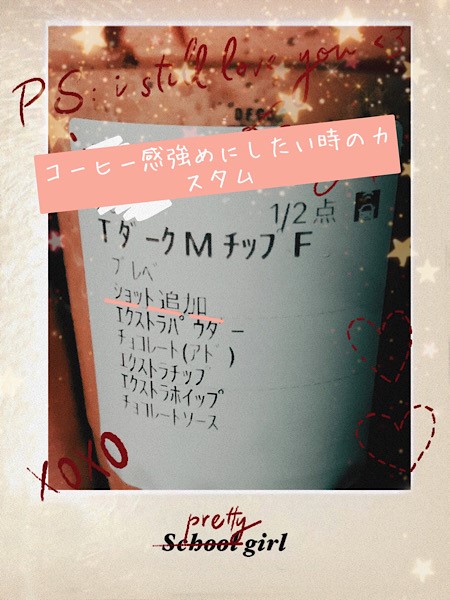 PS: i still love you <3
コーヒー感強めにしたい時のカ
スタム
1/2点
TダークMチップF
ブレベ
ショット追加
エクストラパウダー
チョコレート(アド)
エクストラチップ
エクストラホイップ
チョコレートソース
XOXO
pretty
School girl